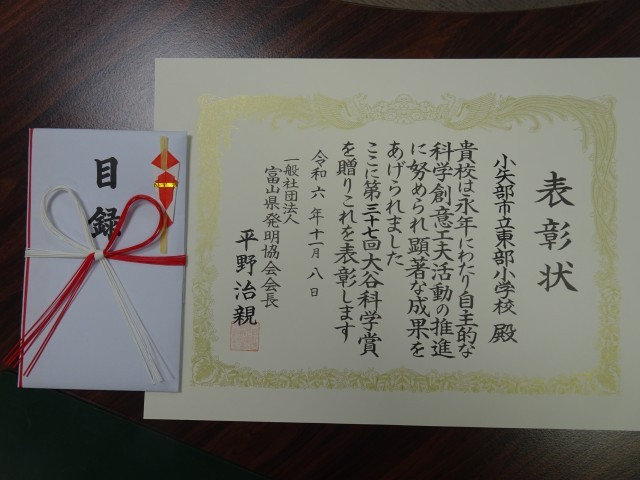 表彰状
小矢部市立東部小学校 殿
貴校は永年にわたり自主的な
科学創意工夫活動の推進
に努められ顕著な成果を
あげられました
ここに第三十七回大谷科学賞
を贈りこれを表彰します
令和六年十一月八日
一般社団法人
富山県発明協会会長
平野治親
目録